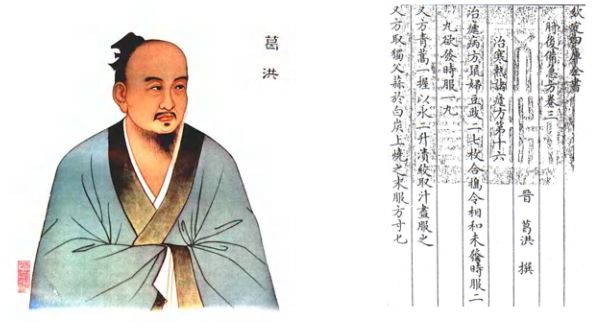 葛洪
欽定四庫全書
肘後備急方卷三
晉 葛洪 撰
治寒熱諸瘧方第十六
治瘧病方鼠婦豆豉二七枚合擣令相和未發時服二
丸欲發時服一丸
又方青蒿一握以水二升漬絞取汁盡服之
又方取獨父蒜於白炭上燒之末服方寸匕